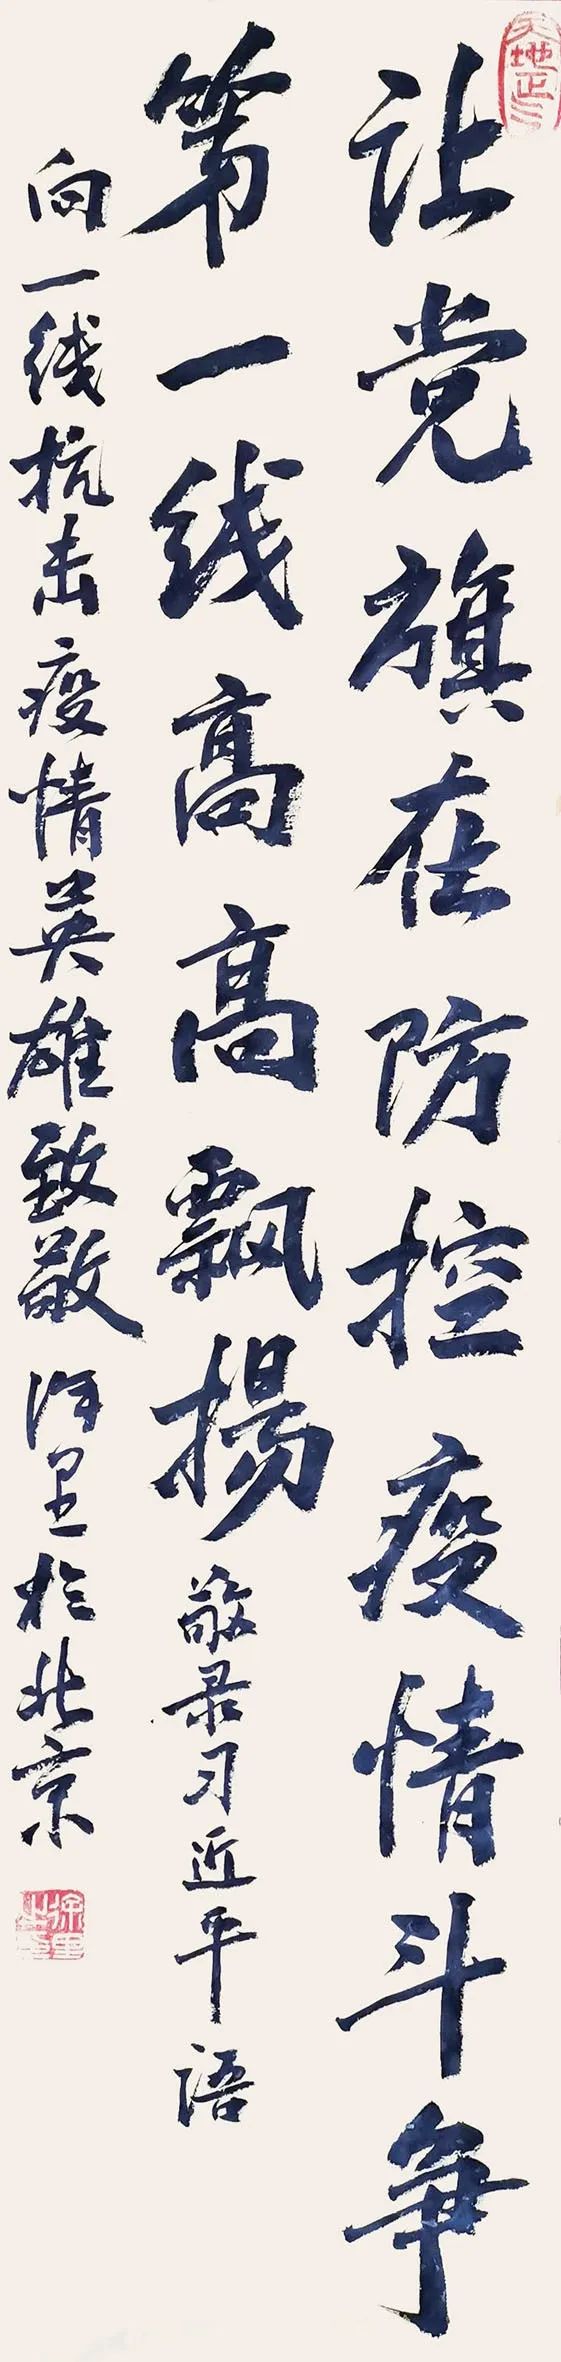 天地正气
让党旗在防控疫情斗争
第一线高高飘揚 敬录习近平语
向一线抗击疫情英雄致敬 徐里於北京